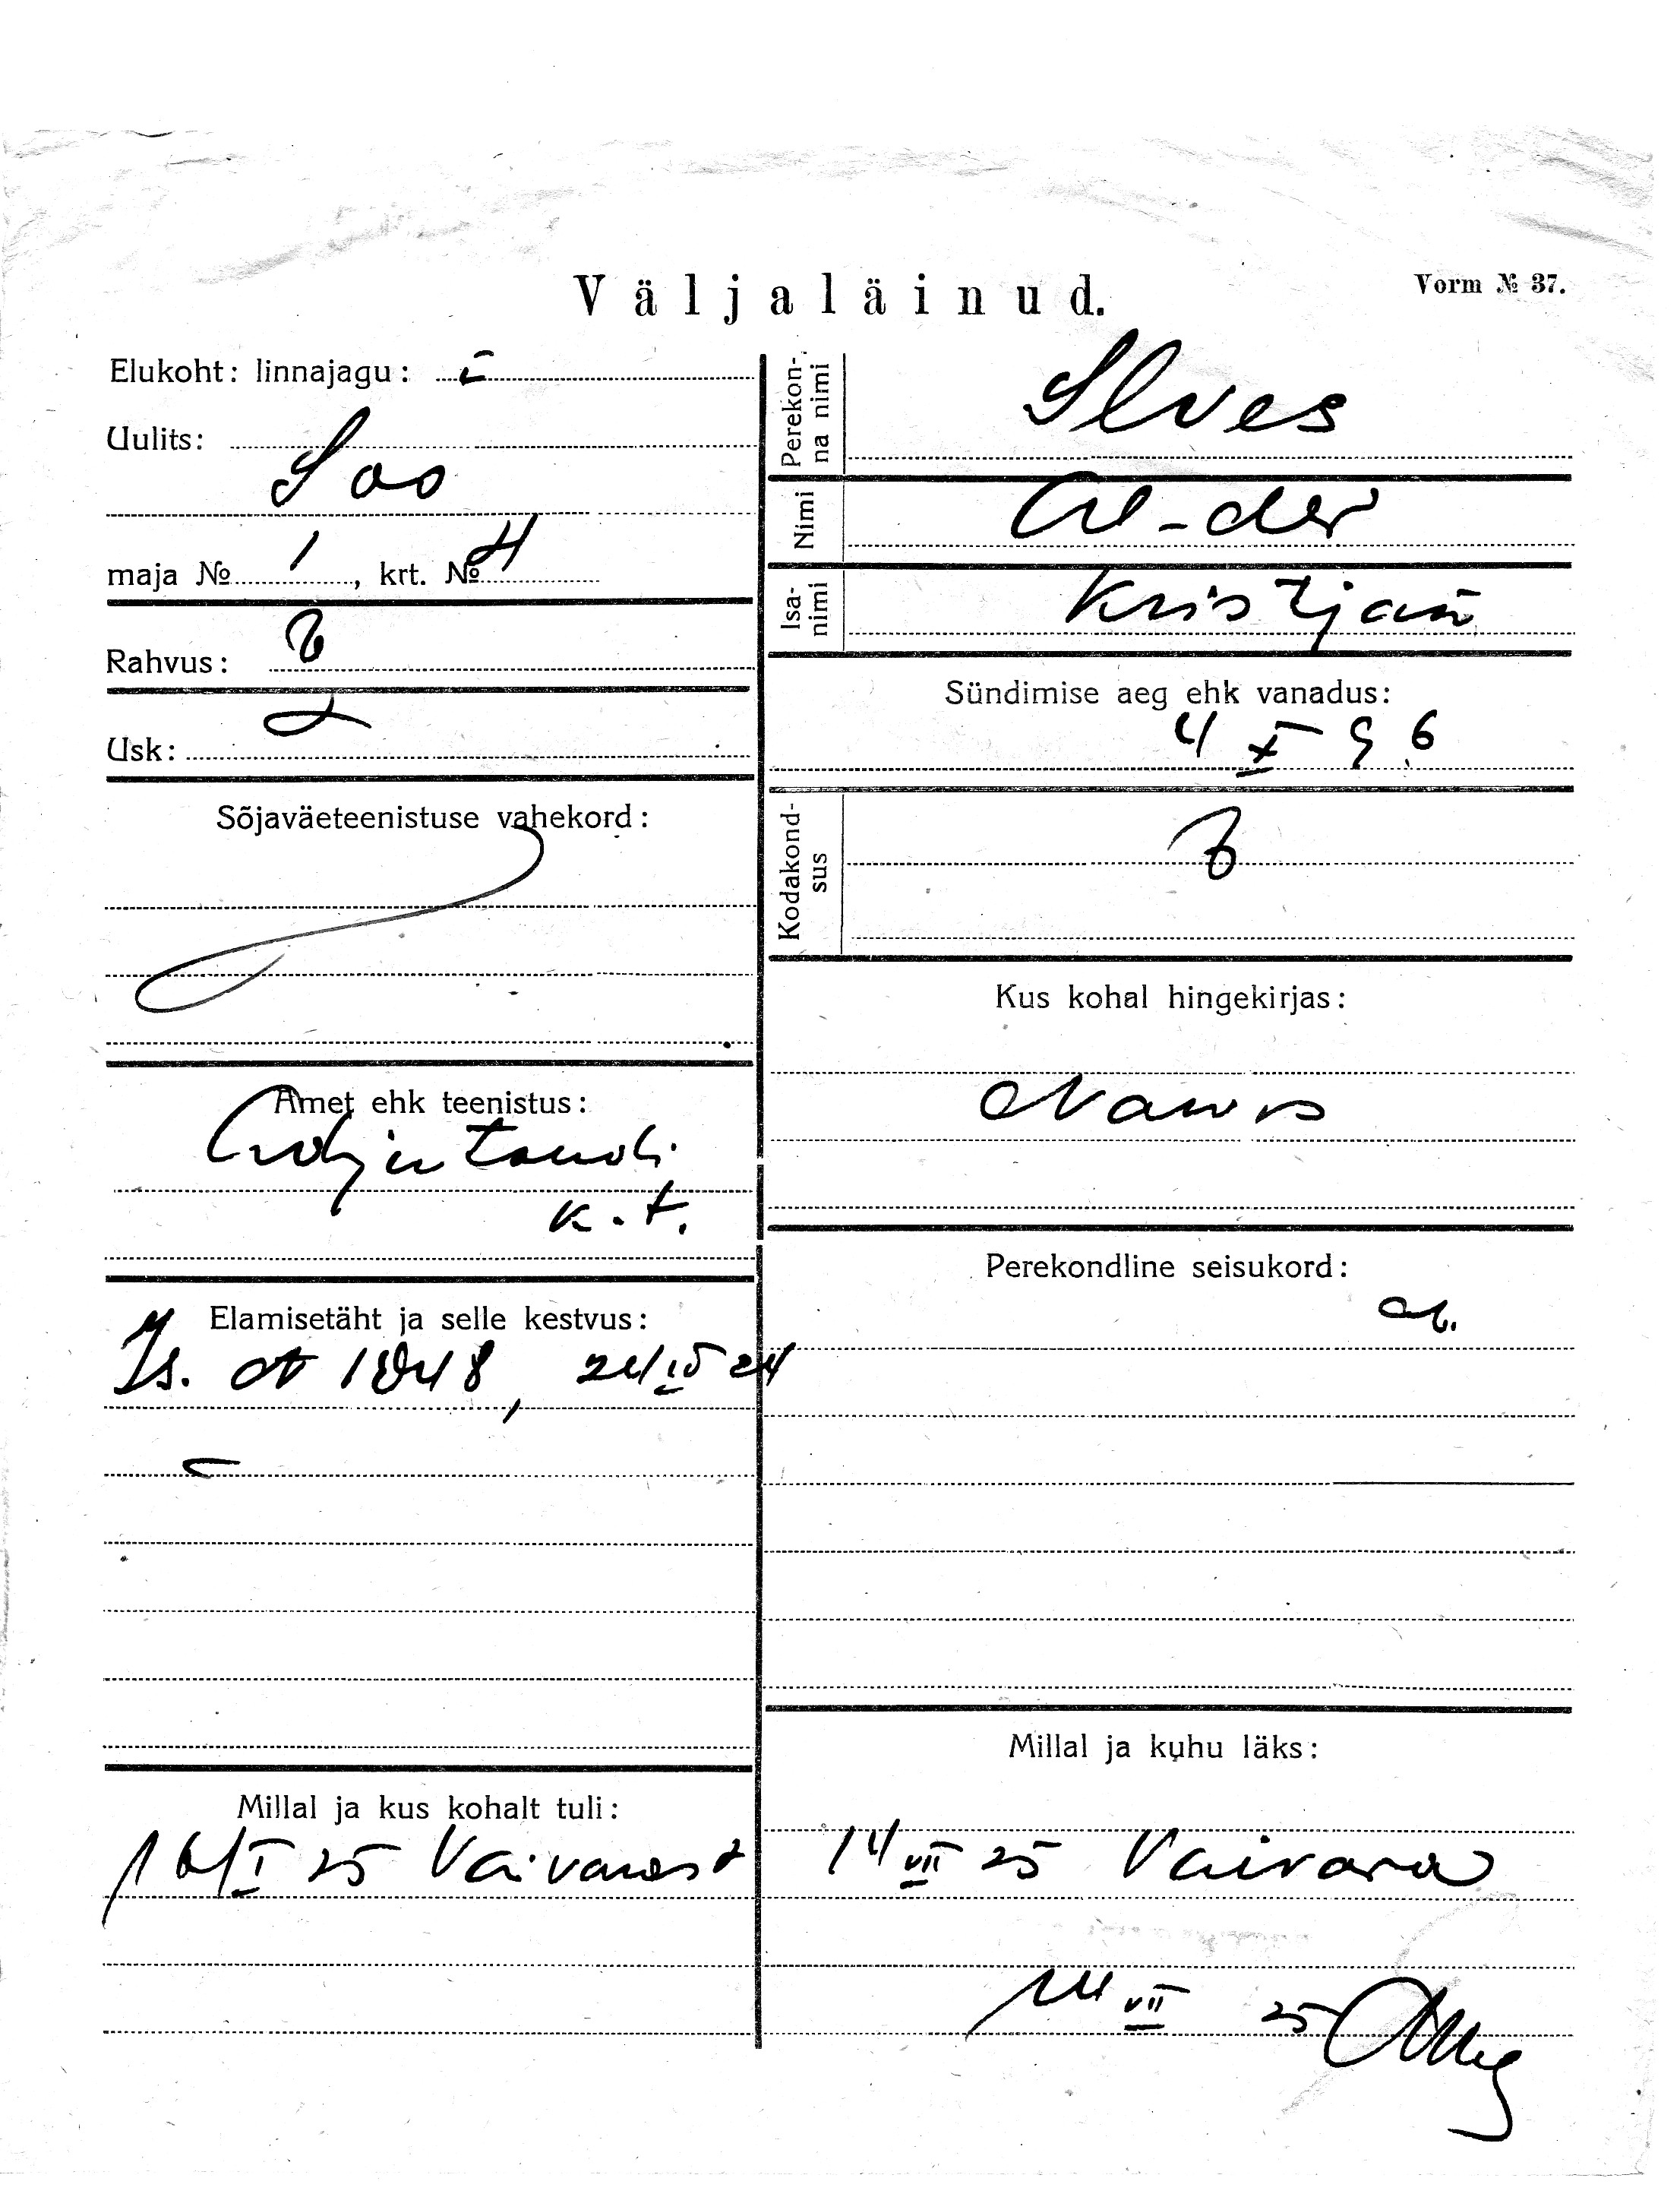 Väljaläinud.
Vorm № 37.
Elukoht: linnajagu: I
Uulits:
Soo
maja № 1, krt. № 4
Rahvus: E
Usk: L
Sõjaväeteenistuse vahekord:
Amet ehk teenistus:
Adjutandi
k. t.
Elamisetäht ja selle kestvus:
Is. № 1848, 24 IV 24
Millal ja kus kohalt tuli:
16/I 25 Vaivarast
Perekonna nimi
Ilves
Nimi
Al-der
Isanimi
Kristjan
Sündimise aeg ehk vanadus:
4 X 96
Kodakondsus
E
Kus kohal hingekirjas:
Narvas
Perekondline seisukord:
Millal ja kuhu läks:
14 VII 25 Vaivara
14 VII 25